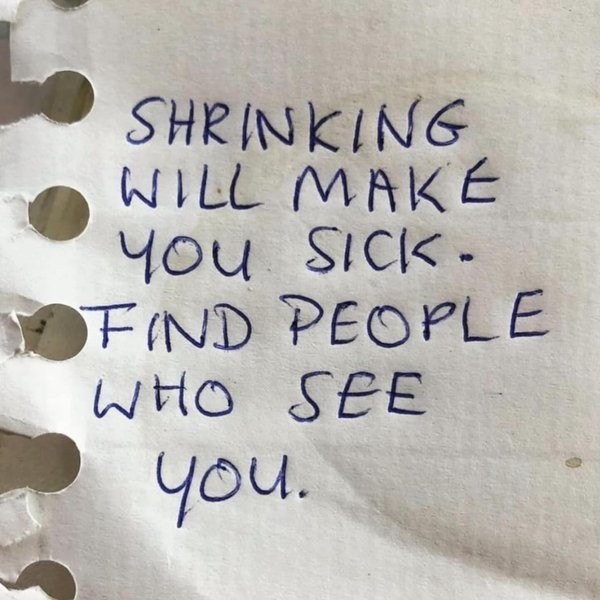 SHRINKING
WILL MAKE
YOU SICK.
FIND PEOPLE
WHO SEE
YOU.